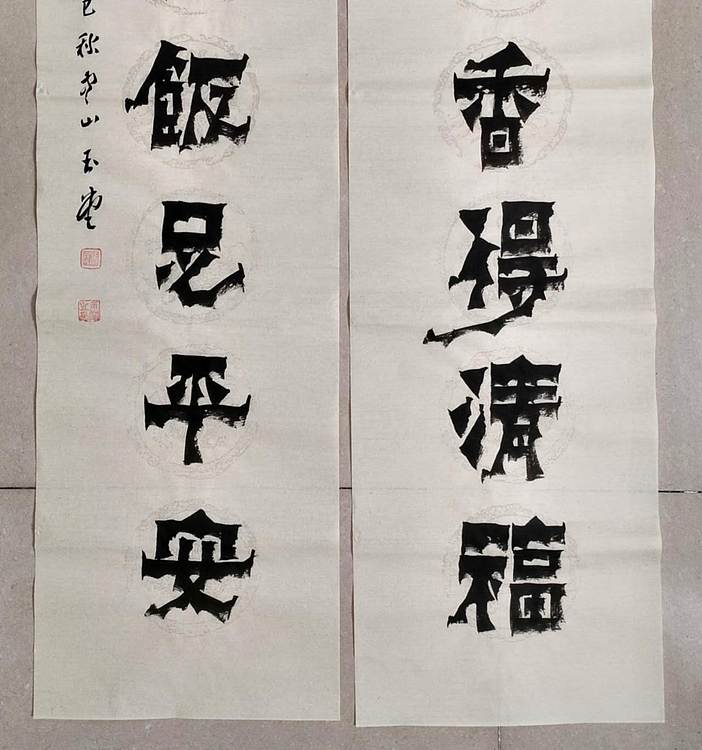 香得清福
飯足平安
巳秋山玉